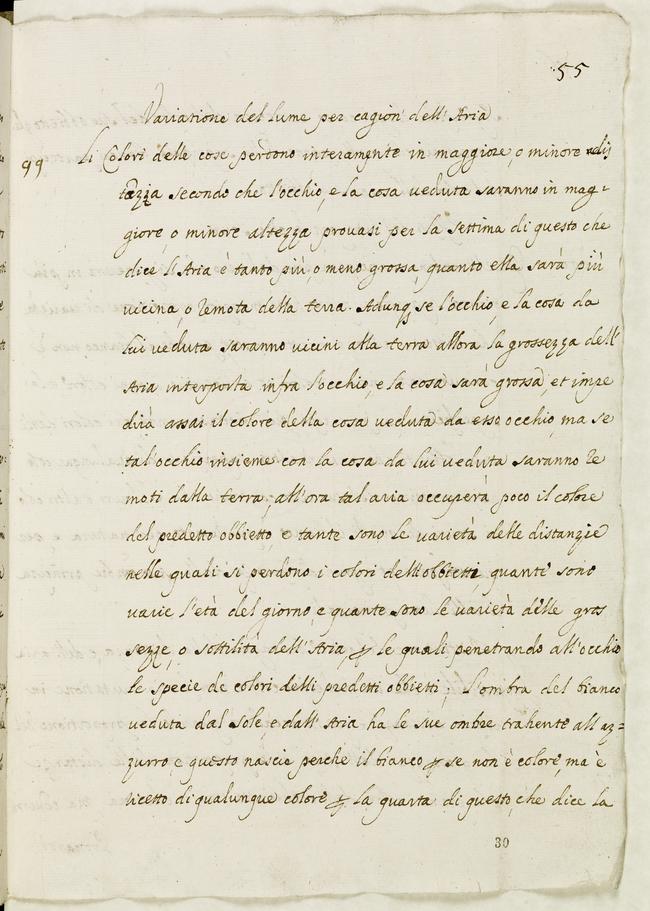 55
Variatione del lume per cagion dell'Aria
99 Li Colori delle cose perdono interamente in maggiore, o minore dis
tazzia secondo che l'occhio, e la cosa veduta saranno in mag-
giore, o minore altezza provasi per la settima di questo che
dice l'Aria è tanto più, o meno grossa, quanto ella sarà più
vicina, o remota della terra. Adunq se l'occhio, e la cosa da
lui veduta saranno vicini alla terra allora la grossezza dell'
Aria interposta infra l'occhio, e la cosa sarà grossa, et impe
dirà assai il colore della cosa veduta da esso occhio, ma se
tal'occhio insieme con la cosa da lui veduta saranno re
moti dalla terra, all'ora tal aria occuperà poco il colore
del predetto obbietto, e tante sono le varietà delle distanzie
nelle quali si perdono i colori dell'obbietti, quante sono
varie l'età del giorno, e quante sono le varietà delle gros
sezze, o sottilità dell'Aria, le quali penetrando all'occhio
le specie de colori delli predetti obbietti; l'ombra del bianco
veduta dal sole, e dall'Aria ha le sue ombre trahente all'az=
zurro, e questo nascie perche il bianco se non è colore, ma è
ricetto di qualunque colore la quarta di questo, che dice la
30